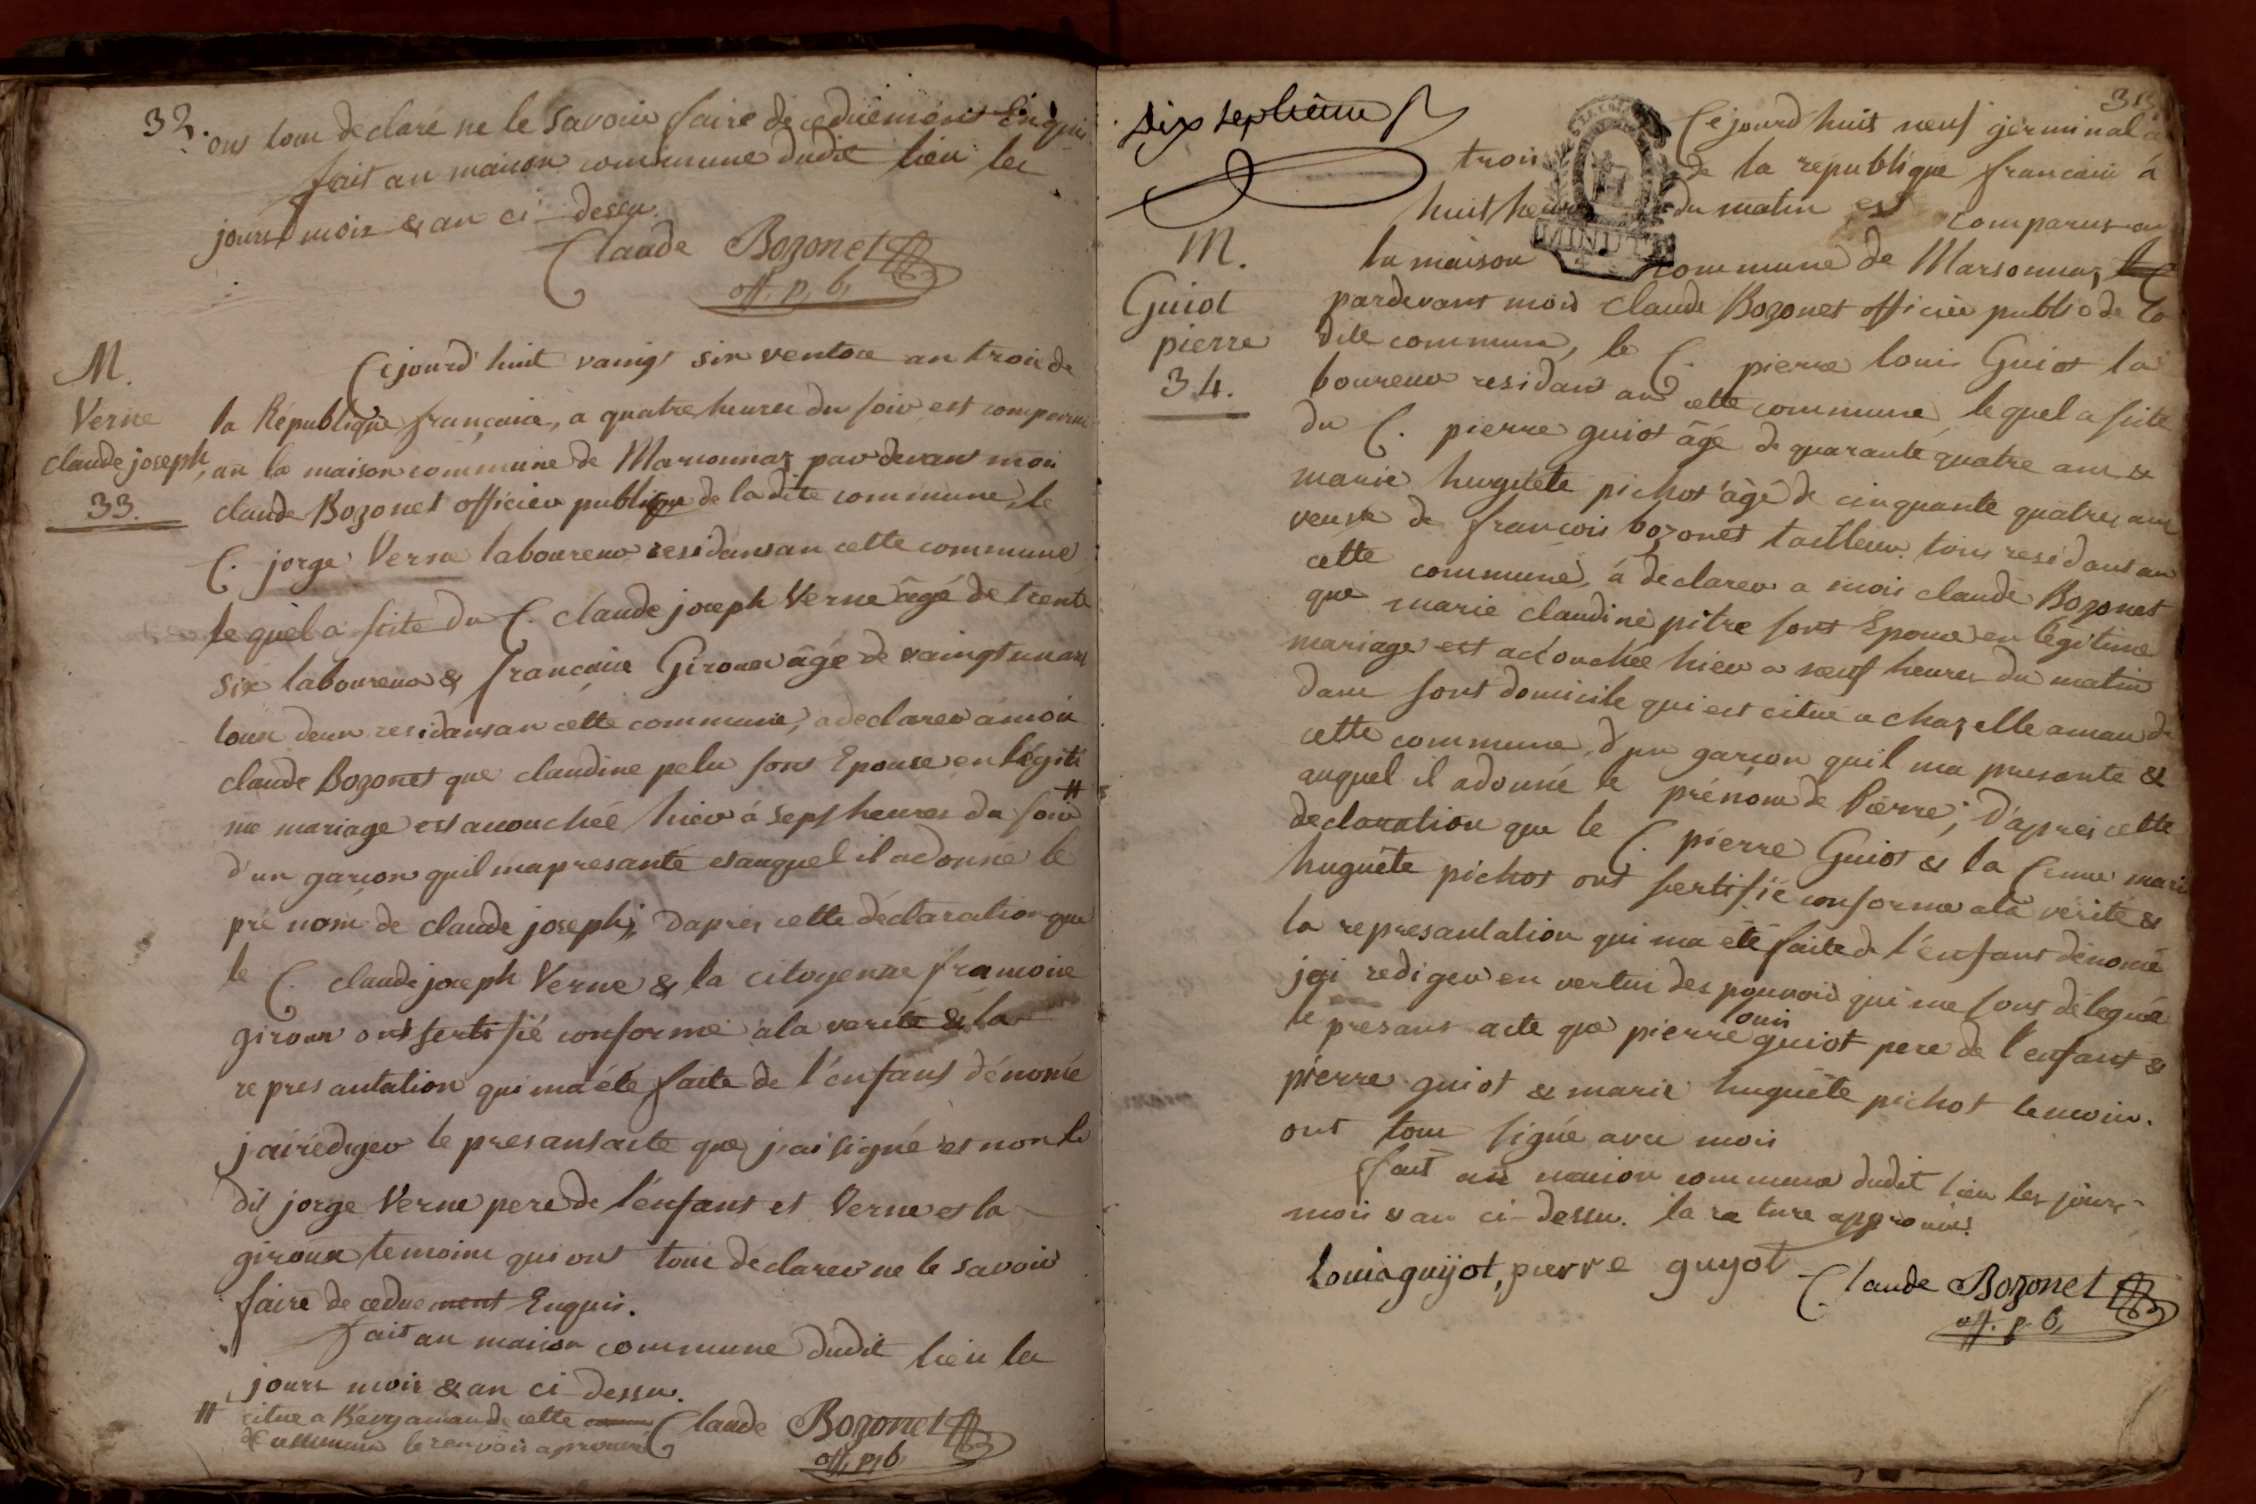 32.
ont tous declaré ne le savoir faire de ceduêment Enquis
fait au maison commune dudit lieu les
jours mois & an ci-dessu.
Claude Bozonet
off. p. b,
M.
Verne
claude joseph,
33.
Cejourd'huit vaingt six ventose an trois de
la République françaice, a quatre heures du soir est comparus
an la maison commune de Marsonnaz par devant moi
claude Bozonet officier publique de la dite commune, le
C. jorge Verne laboureur residans an cette commune
le quel a site du C. claude joseph Verne âgé de trente
six laboureur & francaise Giroux âgé de vaingt un ans
tous deux residans an cette commune, a declarer a moi
claude Bozonet que claudine pelu sont Epouse en légiti
me mariage est acouchée hier á sept heures du soir #
d'un garçon quil ma presanté et auquel il a donné le
pré nom de claude joseph; D'aprés cette déclaration que
le C. claude joseph Verne & la citoyenne francoise
giroux ont sertifié conforme a la verité & la
represantation qui ma été faite de l'enfant dénomé
j'ai rédiger le presans acte que j'ai signé et non le
dit jorge Verne pere de l'enfant et Verne et la
giroux temoins qui ont tous déclarer ne le savoir
faire de ceduement Enquis.
fait an maison commune dudit lieu les
jours mois & an ci-dessu.
# citue a Révy aman de cette
de commune le renvois aprouvé
Claude Bozonet
off, p, b,
six septième
M.
Guiot
pierre
34.
Cejourd'huit neuf germinal a
trois de la république francaise á
huit heures du matin est comparus an
la maison commune de Marsonnaz
pardevant mois Claude Bozonet officier public de la
dite commune, le C. pierre louis Guiot la
boureur residant an cette commune lequel a site
du C. pierre guiot âgé de quarante quatre ans &
marie huguéte pichot âgé de cinquante quatre ans
veuve de francois bozonet tailleur tous residant an
cétte commune, á déclarer a mois claude Bozonet
que marie claudine pitre sont Epouse en légitime
mariage est acouchée hier a neuf heures du matin
dans sont domicile qui est citué a chazelle aman de
cette commune, d'un garçon quil ma presanté &
auquel il a donné le prénom de Pierre; D'aprés cette
declaration que le C. pierre Guiot & la Cenne marie
huguête pichot ont sertifié conforme a la verité &
la represantation qui ma été faite de l'enfant dénomé
jai rediger en vertu des pouvoir qui me sont délegué
le présant acte que pierre louis guiot pere de l'enfant &
pierre guiot & marie huguête pichot temoin.
ont tous signé avec mois
fait an maison commune dudit lieu les jours
mois & an ci-dessu. la rature approuvée
Louis guÿot, pierre guyot
Claude Bozonet
off. p. b,